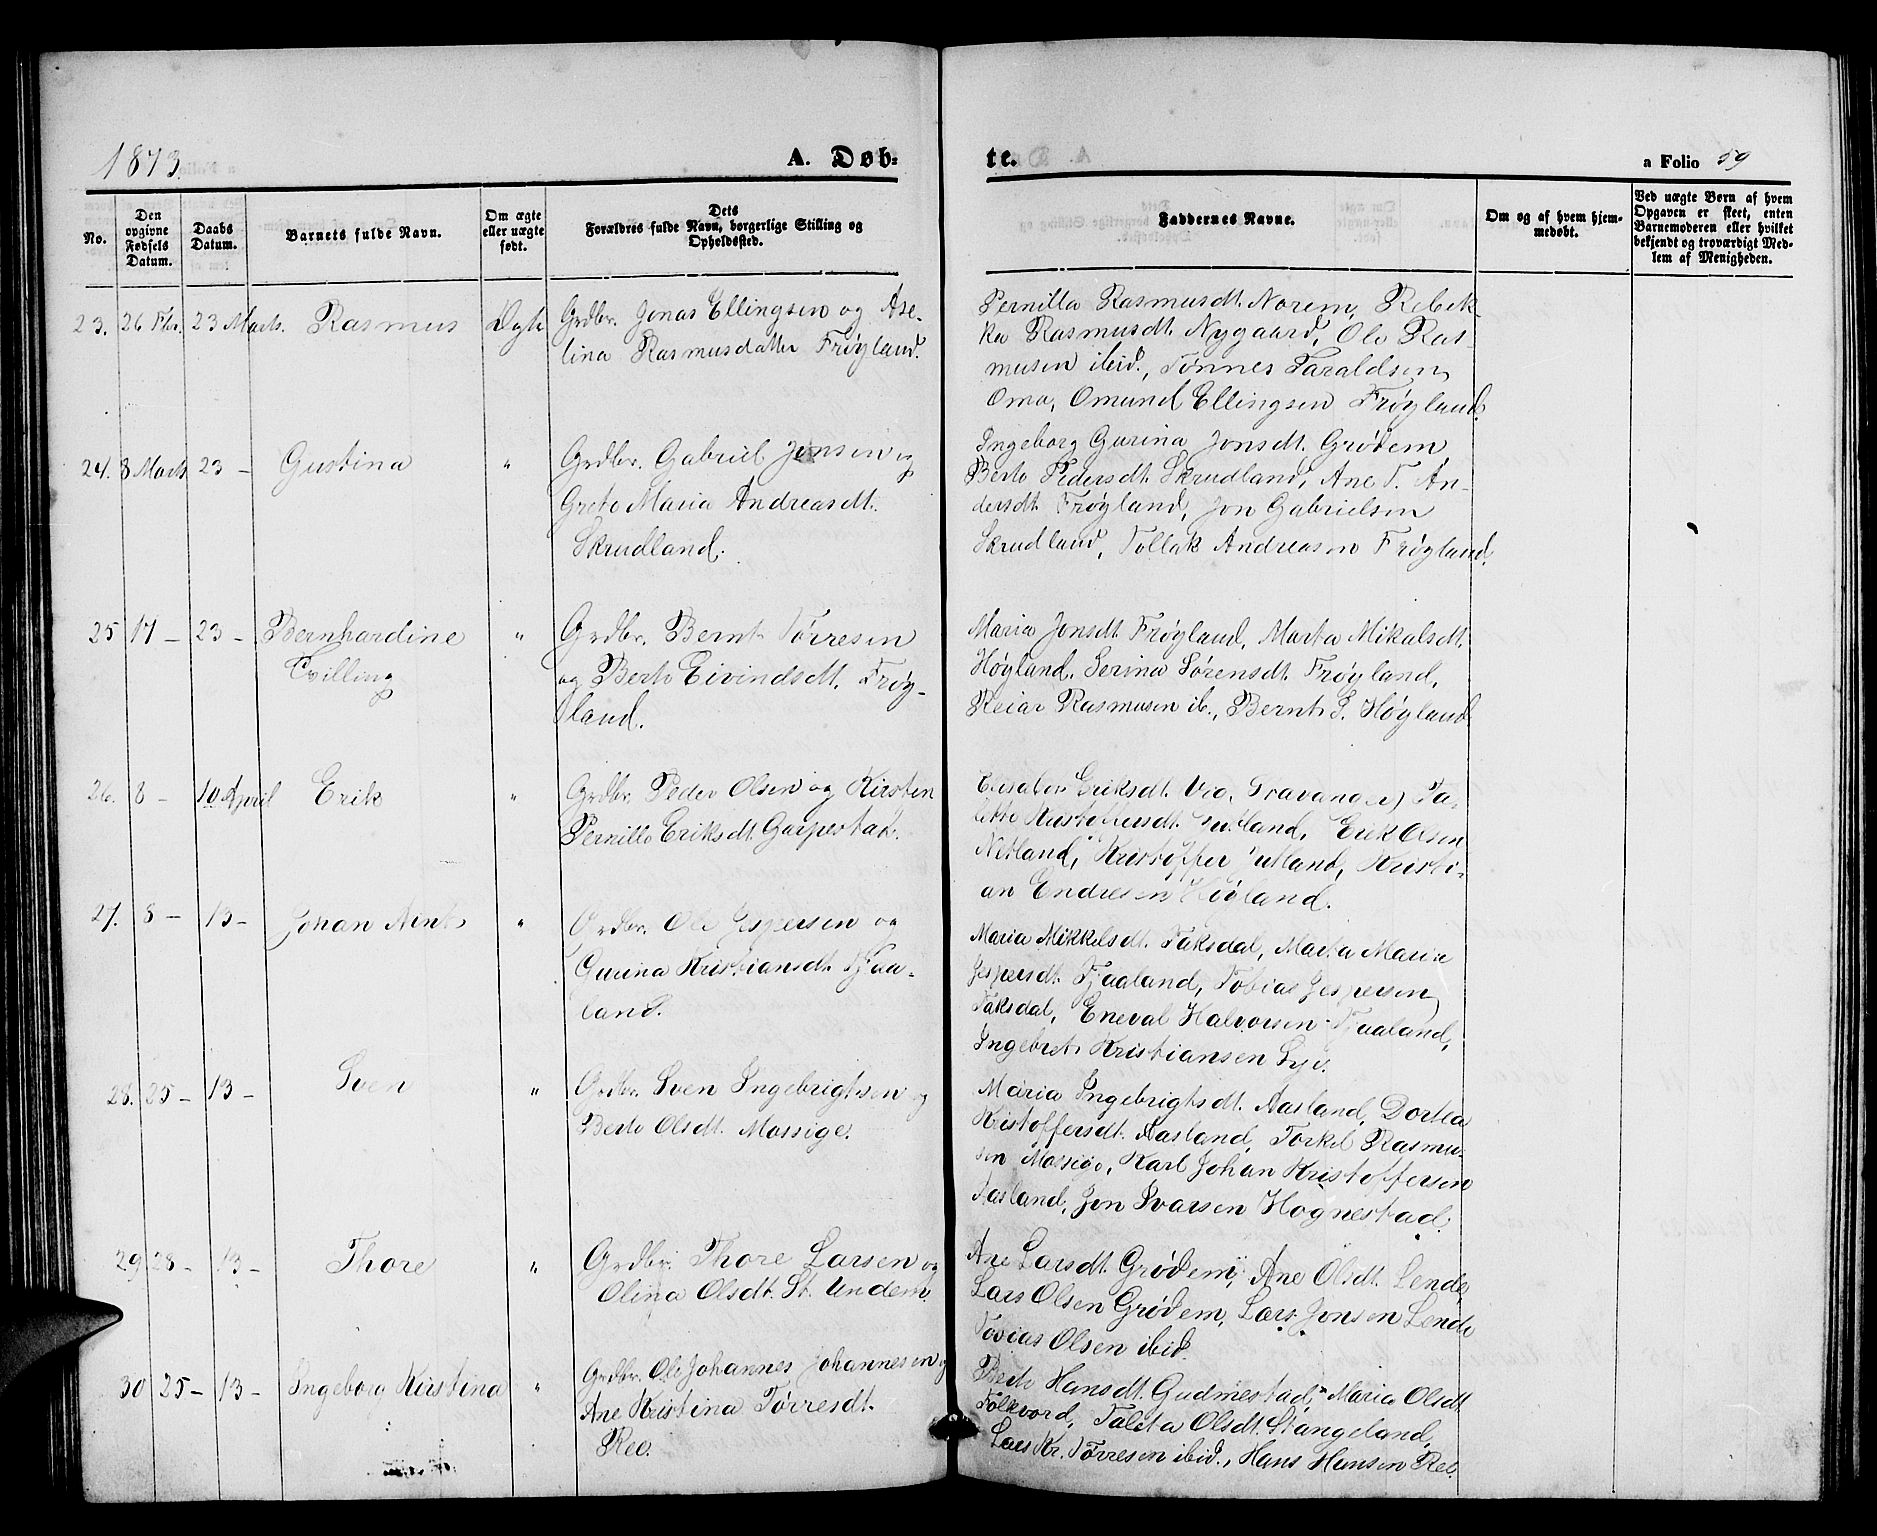 1873.
A. Døb-
te.
a Folio 59
No.
Den opgivne Fødsels Datum.
Daabs Datum.
Barnets fulde Navn.
Om ægte eller uægte født.
Dets Forældres fulde Navn, borgerlige Stilling og Opholdssted.
Faddernes Navne.
Om og af hvem hjemmedøbt.
Ved uægte Børn af hvem Opgaven er skeet, enten Barnemoderen eller hvilket bekjendt og troværdigt Medlem af Menigheden.
23. 26 Fbr. 23 Marts. Rasmus Ægte
Grdbr. Jonas Ellingsen og Ase-
lina Rasmusdatter Frøyland.
Pernilla Rasmusdt. Norem, Rebek-
ka Rasmusdt. Nygaard, Ole Ras-
musen ibid., Tønnes Taraldsen
Oma, Omund Ellingsen Frøyland.
24. 8 Marts 23 - Gustina "
Grdbr. Gabriel Jonsen og
Grete Maria Andreasdt.
Skrudland.
Ingeborg Gurina Jonsdt. Grødem
Berte Pedersdt. Skrudland, Ane T. An-
dersdt. Frøyland, Jon Gabrielsen
Skrudland, Tollak Andreasen Frøyland.
25 17 - 23 - Bernhardine "
Tvilling
Grdbr. Bernt Tørresen
og Berte Eivindsdt. Frøy-
land.
Maria Jonsdt. Frøyland, Marta Mikalsdt.
Høyland, Serina Sørensdt. Frøyland,
Reiar Rasmusen ib., Bernt S. Høyland.
26. 8 - 10 April Erik "
Grdbr. Peder Olsen og Kirsten
Pernille Eriksdt. Garpestad.
Elisabet Eriksdt. Stavanger,
Kristoffersdt. Erik Olsen
Netland, Kristoffer Kristi-
an Endresen Høyland.
27. 8 - 13 - Johan "
Grdbr. Ole Jespersen og
Gurina Kristiansdt. Fjaa-
land.
Maria Mikkelsdt. Taksdal, Marta Maria
Jespersdt. Fjaaland, Tobias Jespersen
Taksdal, Eneval Halvorsen Fjaaland,
Ingebret Kristiansen Lye.
28. 25 - 13 - Sven "
Grdbr. Sven Ingebrigtsen og
Berte Olsdt. Mossige.
Maria Ingebrigtsdt. Aasland, Dortea
Kristoffersdt. Aasland, Torkel Rasmu-
sen Mossige, Karl Johan Kristoffersen
Aasland, Jon Ivarsen Hognestad.
29 28 - 13 - Thore "
Grdbr. Thore Larsen og
Olina Olsdt. St. Undem.
Ane Larsdt. Grødem, Ane Olsdt. Lende,
Lars Olsen Grødem, Lars Jonsen Lende
Tobias Olsen ibid.
30 25 - 13 - Ingeborg Kristina "
Grdbr. Ole Johannes Johannesen og
Ane Kristina Tørresdt.
Ree.
Berte Hansdt. Gudmestad, Maria Olsdt.
Folkvord, Taleta Olsdt. Stangeland,
Lars Kr. Tørresen ibid., Hans Hansen Ree.